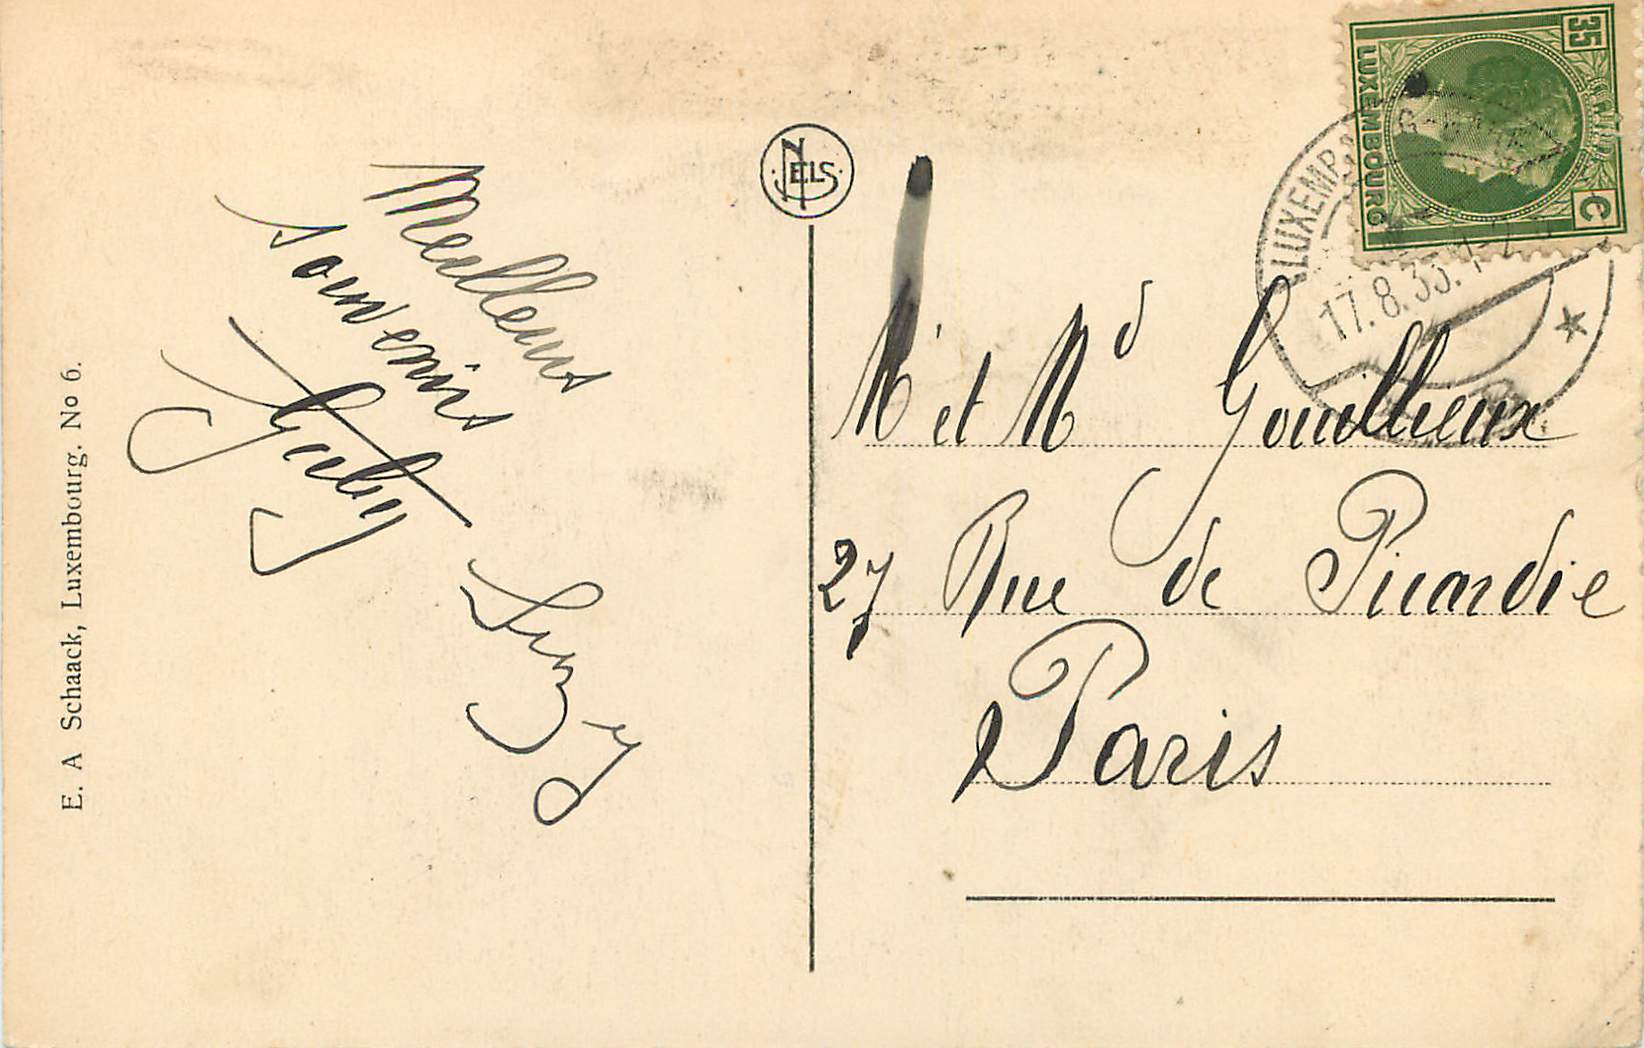 E. A Schaack, Luxembourg. No 6.
Meilleurs
souvenirs
Gaby
Suzy
NELS
35
C
LUXEMBOURG
17.8.33.
M et Md Gouilheux
27 Rue de Picardie
Paris